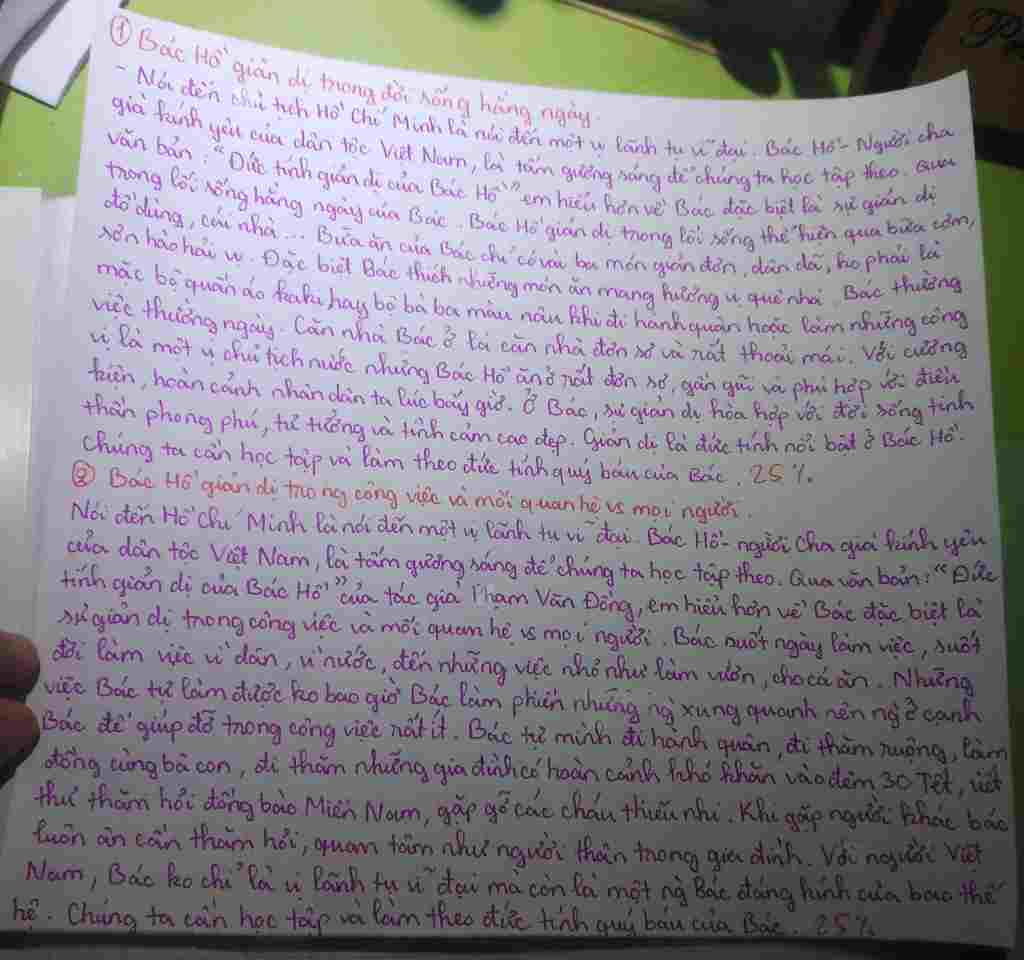 ① Bác Hồ giản dị trong đời sống hằng ngày.
- Nói đến chủ tịch Hồ Chí Minh là nói đến một vị lãnh tụ vĩ đại. Bác Hồ - Người cha
già kính yêu của dân tộc Việt Nam, là tấm gương sáng để chúng ta học tập theo. Qua
văn bản: "Đức tính giản dị của Bác Hồ" em hiểu hơn về Bác đặc biệt là sự giản dị
trong lối sống hằng ngày của Bác. Bác Hồ giản dị trong lối sống thể hiện qua bữa cơm,
đồ dùng, cái nhà... Bữa ăn của Bác chỉ có vài ba món giản đơn, dân dã, ko phải là
sơn hào hải vị. Đặc biệt Bác thích những món ăn mang hương vị quê nhà. Bác thường
mặc bộ quần áo kaki hay bộ bà ba màu nâu khi đi hành quân hoặc làm những công
việc thường ngày. Căn nhà Bác ở là căn nhà đơn sơ và rất thoải mái. Với cương
vị là một vị chủ tịch nước nhưng Bác Hồ ăn ở rất đơn sơ, gần gũi và phù hợp với điều
kiện, hoàn cảnh nhân dân ta lúc bấy giờ. Ở Bác, sự giản dị hòa hợp với đời sống tinh
thần phong phú, tư tưởng và tình cảm cao đẹp. Giản dị là đức tính nổi bật ở Bác Hồ.
Chúng ta cần học tập và làm theo đức tính quý báu của Bác. 25%
② Bác Hồ giản dị trong công việc và mối quan hệ vs mọi người.
Nói đến Hồ Chí Minh là nói đến một vị lãnh tụ vĩ đại. Bác Hồ - người cha già kính yêu
của dân tộc Việt Nam, là tấm gương sáng để chúng ta học tập theo. Qua văn bản: "Đức
tính giản dị của Bác Hồ" của tác giả Phạm Văn Đồng, em hiểu hơn về Bác đặc biệt là
sự giản dị trong công việc và mối quan hệ vs mọi người. Bác suốt ngày làm việc, suốt
đời làm việc vì dân, vì nước, đến những việc nhỏ như làm vườn, cho cá ăn. Những
việc Bác tự làm được ko bao giờ Bác làm phiền những ng xung quanh nên ng ở cạnh
Bác để giúp đỡ trong công việc rất ít. Bác tự mình đi hành quân, đi thăm ruộng, làm
đồng cùng bà con, đi thăm những gia đình có hoàn cảnh khó khăn vào đêm 30 Tết, viết
thư thăm hỏi đồng bào Miền Nam, gặp gỡ các cháu thiếu nhi. Khi gặp người khác bác
luôn ân cần thăm hỏi, quan tâm như người thân trong gia đình. Với người Việt
Nam, Bác ko chỉ là vị lãnh tụ vĩ đại mà còn là một ng Bác đáng kính của bao thế
hệ. Chúng ta cần học tập và làm theo đức tính quý báu của Bác. 25%